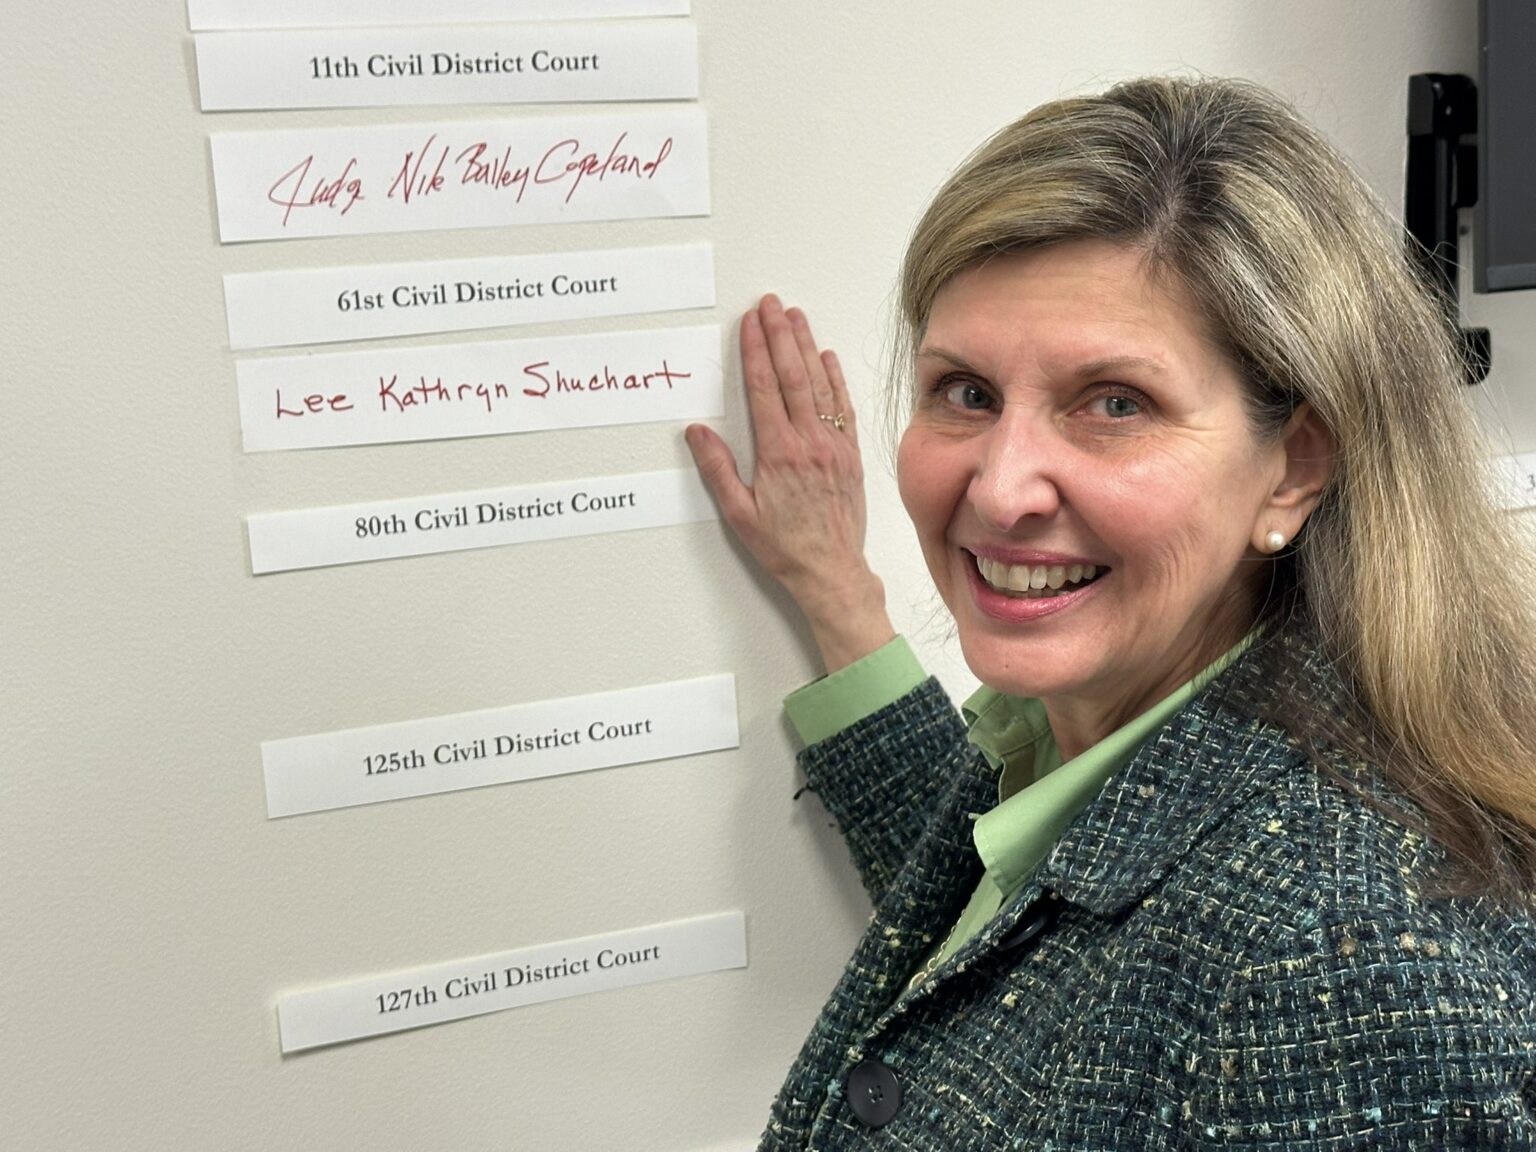 11th Civil District Court
Judge Nik Bailey Copeland
61st Civil District Court
Lee Kathryn Shuchart
80th Civil District Court
125th Civil District Court
127th Civil District Court
3